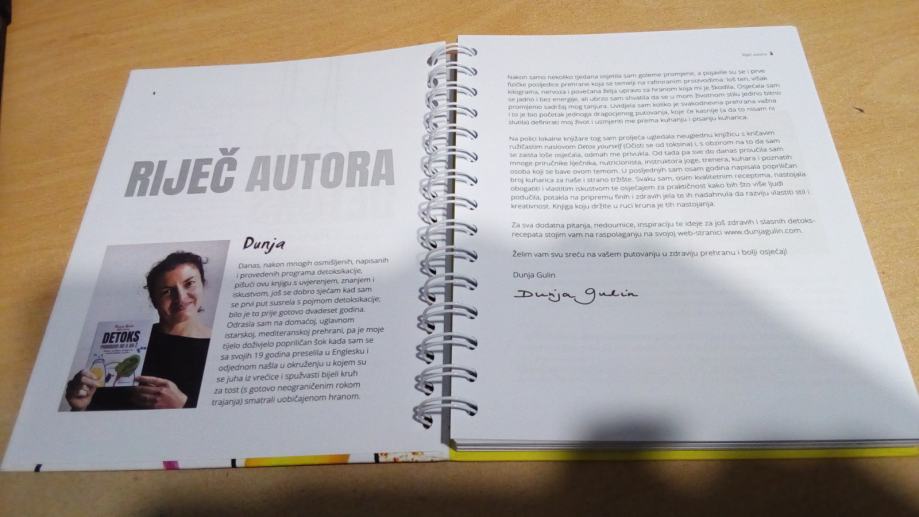 RIJEČ AUTORA
Dunja
Danas, nakon mnogih osmišljenih, napisanih
i provedenih programa detoksikacije,
pišući ovu knjigu s uvjerenjem, znanjem i
iskustvom, još se dobro sjećam kad sam
se prvi put susrela s pojmom detoksikacije;
bilo je to prije gotovo dvadeset godina.
Odrasla sam na domaćoj, uglavnom
istarskoj, mediteranskoj prehrani, pa je moje
tijelo doživjelo popriličan šok kada sam se
sa svojih 19 godina preselila u Englesku i
odjednom našla u okruženju u kojem su
se juha iz vrećice i spužvasti bijeli kruh
za tost (s gotovo neograničenim rokom
trajanja) smatrali uobičajenom hranom.
DETOKS
Riječ autora
Nakon samo nekoliko tjedana osjetila sam goleme promjene, a pojavile su se i prve
fizičke posljedice prehrane koja se temelji na rafiniranim proizvodima: loš ten, višak
kilograma, nervoza i povećana želja upravo za hranom koja mi je škodila. Osjećala sam
se jadno i bez energije, ali ubrzo sam shvatila da se u mom životnom stilu jedino bitno
promijenio sadržaj mog tanjura. Uvidjela sam koliko je svakodnevna prehrana važna
i to je bio početak jednoga dragocjenog putovanja, koje će kasnije (a da to nisam ni
slutila) definirati moj život i usmjeriti me prema kuhanju i pisanju kuharica.
Na polici lokalne knjižare tog sam proljeća ugledala neuglednu knjižicu s kričavim
ružičastim naslovom Detox yourself (Očisti se od toksina) i, s obzirom na to da sam
se zaista loše osjećala, odmah me privukla. Od tada pa sve do danas proučila sam
mnoge priručnike liječnika, nutricionista, instruktora joge, trenera, kuhara i poznatih
osoba koji se bave ovom temom. U posljednjih sam osam godina napisala popriličan
broj kuharica za naše i strano tržište. Svaku sam, osim kvalitetnim receptima, nastojala
obogatiti i vlastitim iskustvom te osjećajem za praktičnost kako bih što više ljudi
podučila, potakla na pripremu finih i zdravih jela te ih nadahnula da razviju vlastiti stil i
kreativnost. Knjiga koju držite u ruci kruna je tih nastojanja.
Za sva dodatna pitanja, nedoumice, inspiraciju te ideje za još zdravih i slasnih detoks-
recepata stojim vam na raspolaganju na svojoj web-stranici www.dunjagulin.com.
Želim vam svu sreću na vašem putovanju u zdraviju prehranu i bolji osjećaj!
Dunja Gulin
Dunja Gulin